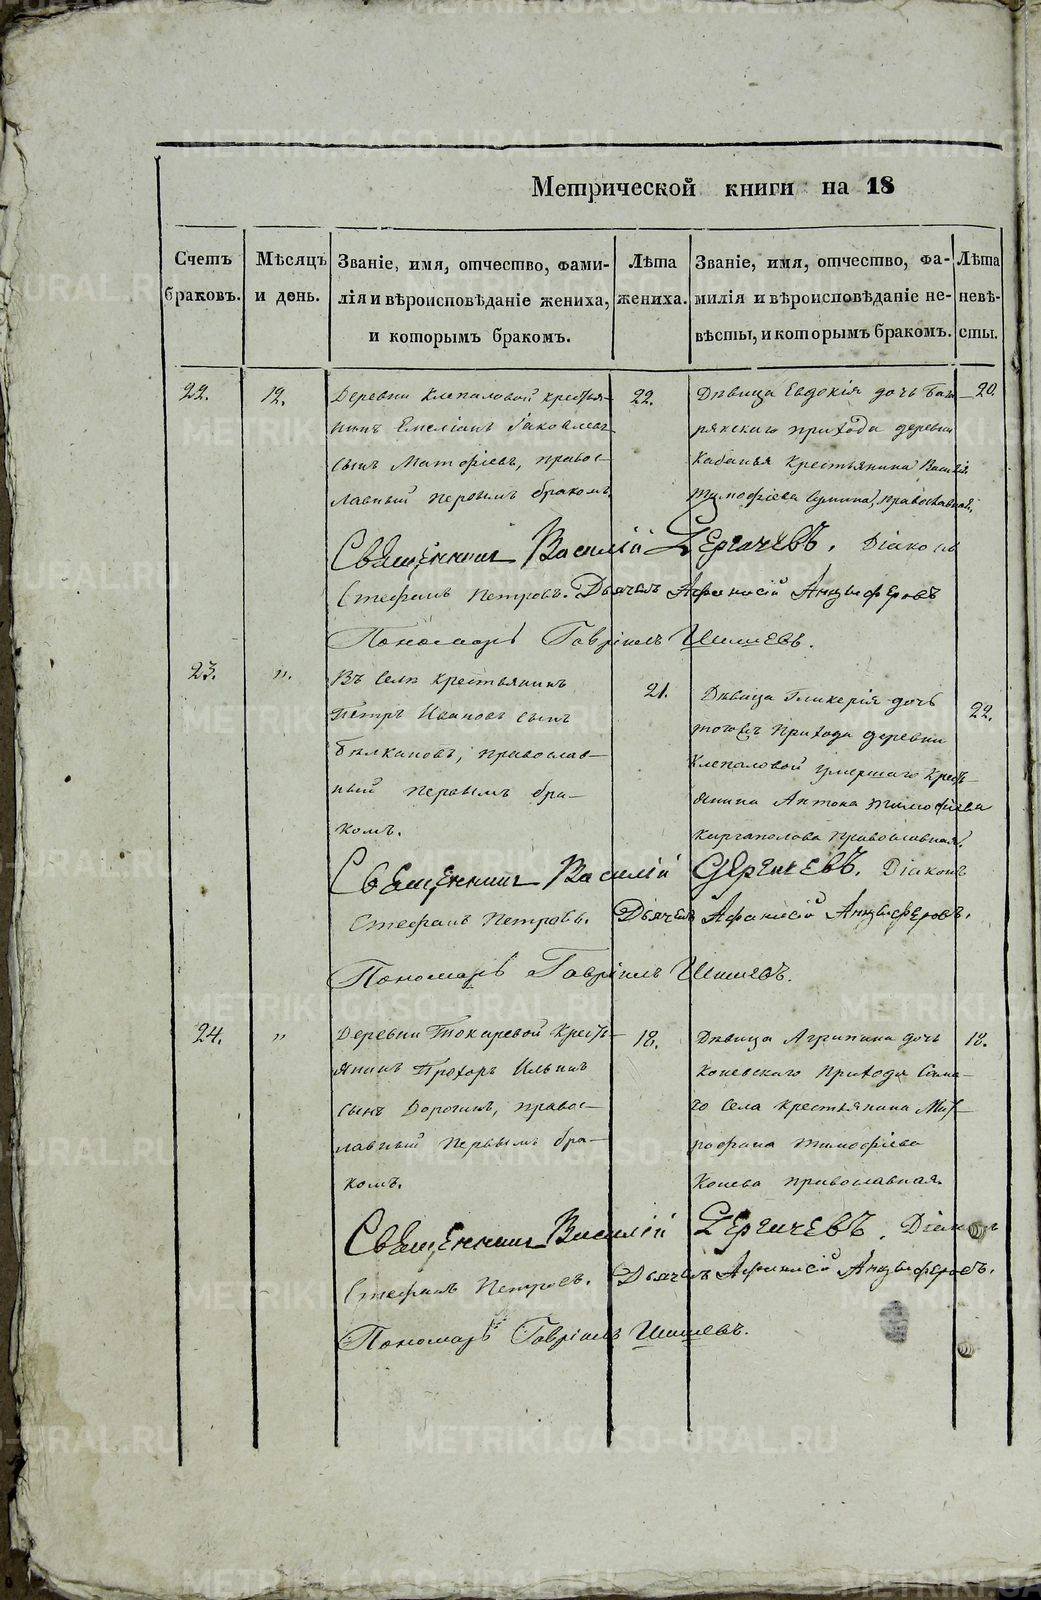 Метрической книги на 18
Счетъ браковъ.
Мѣсяцъ и день.
Званіе, имя, отчество, фами-
лія и вѣроисповѣданіе жениха,
и которымъ бракомъ.
Лѣта жениха.
Званіе, имя, отчество, фа-
милія и вѣроисповѣданіе не-
вѣсты, и которымъ бракомъ.
Лѣта невѣ-
сты.
22.
12.
Деревни Клепаловой крестья-
нинъ Емеліанъ Іаковлевъ
сынъ Матфіевъ, правос-
лавный первымъ бракомъ
22.
Дѣвица Евдокія дочь Баги-
рякскаго прихода деревни
Кабанья крестьянина Василія
Тимофіева православная,
20.
Священникъ Василій Сергичевъ. Діаконъ
Стефанъ Петровъ. Дьячекъ Афанасій Анцыферовъ
Пономарь Гавріилъ Шишевъ.
23.
„.
Въ селѣ крестьянинъ
Петръ Ивановъ сынъ
Бѣлкановъ, православ-
ный первымъ бра-
комъ.
21.
Дѣвица Гликерія дочь
тогожъ прихода деревни
Клепаловой умершаго крест-
ьянина Антона Тимофіева
Каргаполова православная.
22.
Священникъ Василій Сергичевъ. Діаконъ
Стефанъ Петровъ. Дьячекъ Афанасій Анцыферовъ.
Пономарь Гавріилъ Шишевъ.
24.
„
Деревни Токаревой крест-
янинъ Прохоръ Ильинъ
сынъ Дорогинъ, правос-
лавный первымъ бра-
комъ.
18.
Дѣвица Агрипина дочь
Коневскаго прихода сама-
го села крестьянина Мит-
рофана Тимофіева
Конева православная.
18.
Священникъ Василій Сергичевъ. Діаконъ
Стефанъ Петровъ. Дьячекъ Афанасій Анцыферовъ.
Пономарь Гавріилъ Шишевъ.
METRIKI.GASO-URAL.RU